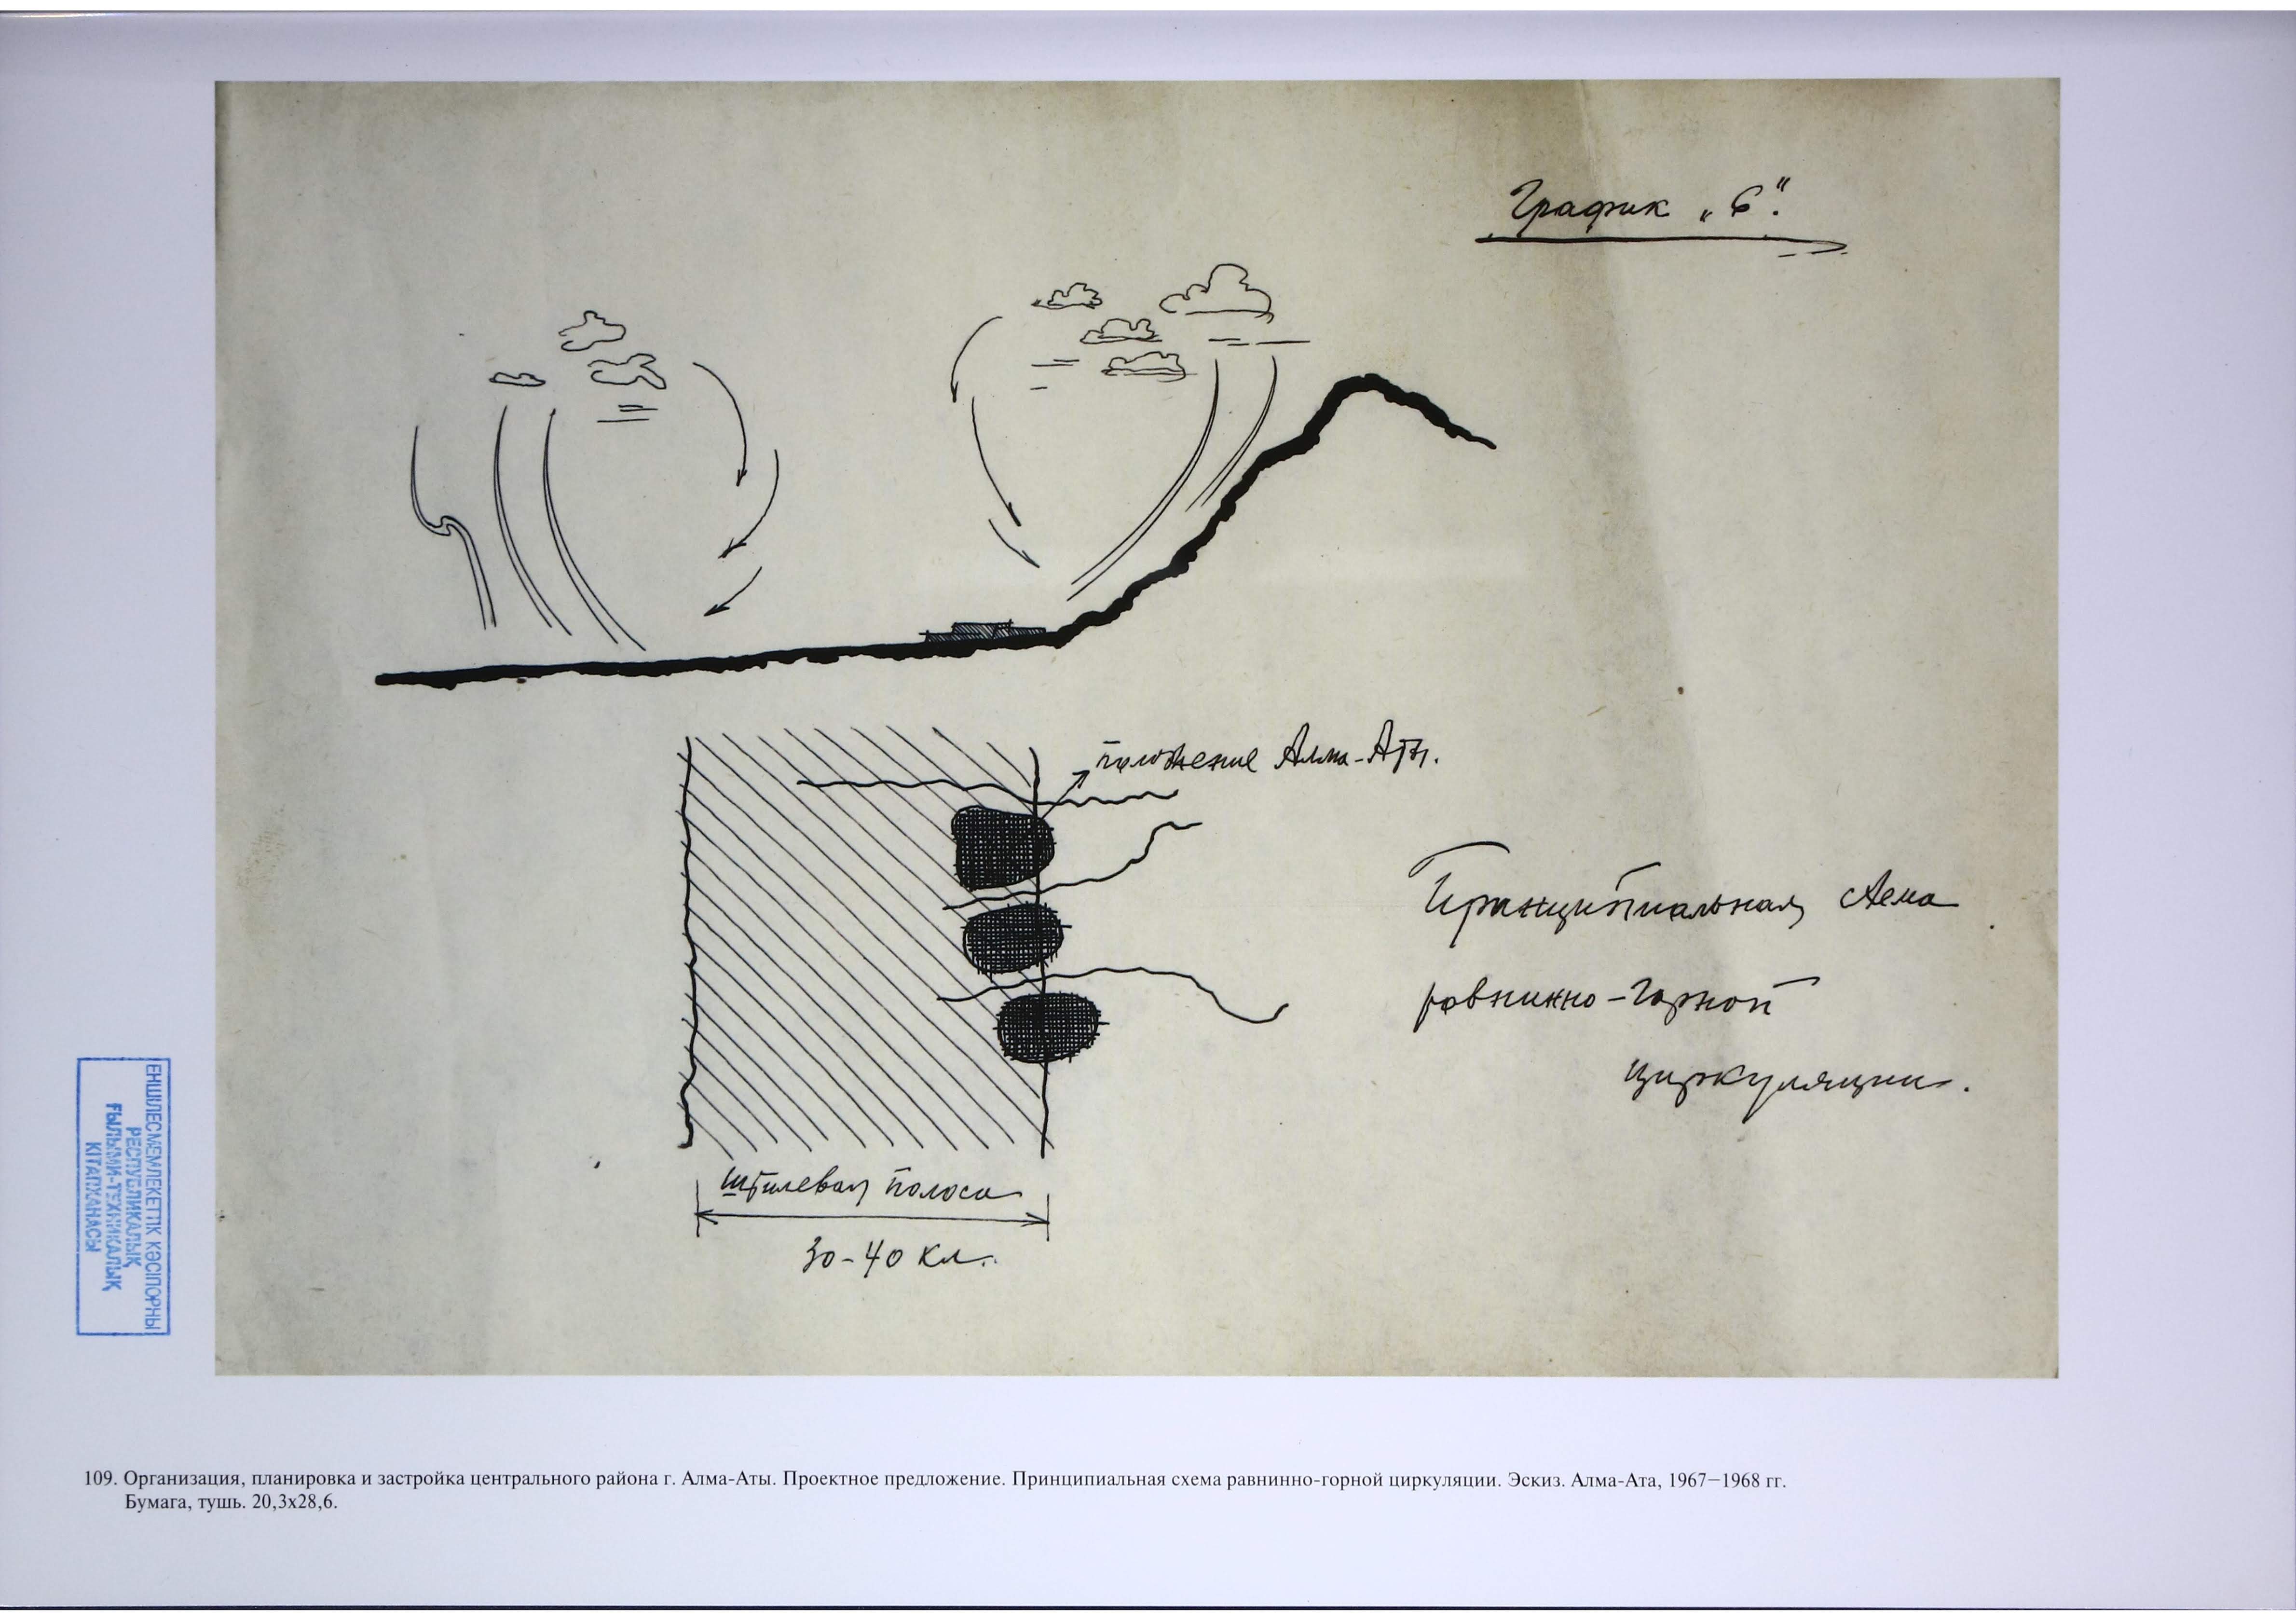 График „б".
положение Алма-Аты.
Принципиальная схема
равнинно-горной
циркуляции.
штилевая полоса
30-40 км.
ЕНШІЛЕС МЕМЛЕКЕТТІК КӘСІПОРНЫ
РЕСПУБЛИКАЛЫҚ
ҒЫЛЫМИ-ТЕХНИКАЛЫҚ
КІТАПХАНАСЫ
109. Организация, планировка и застройка центрального района г. Алма-Аты. Проектное предложение. Принципиальная схема равнинно-горной циркуляции. Эскиз. Алма-Ата, 1967—1968 гг.
Бумага, тушь. 20,3х28,6.